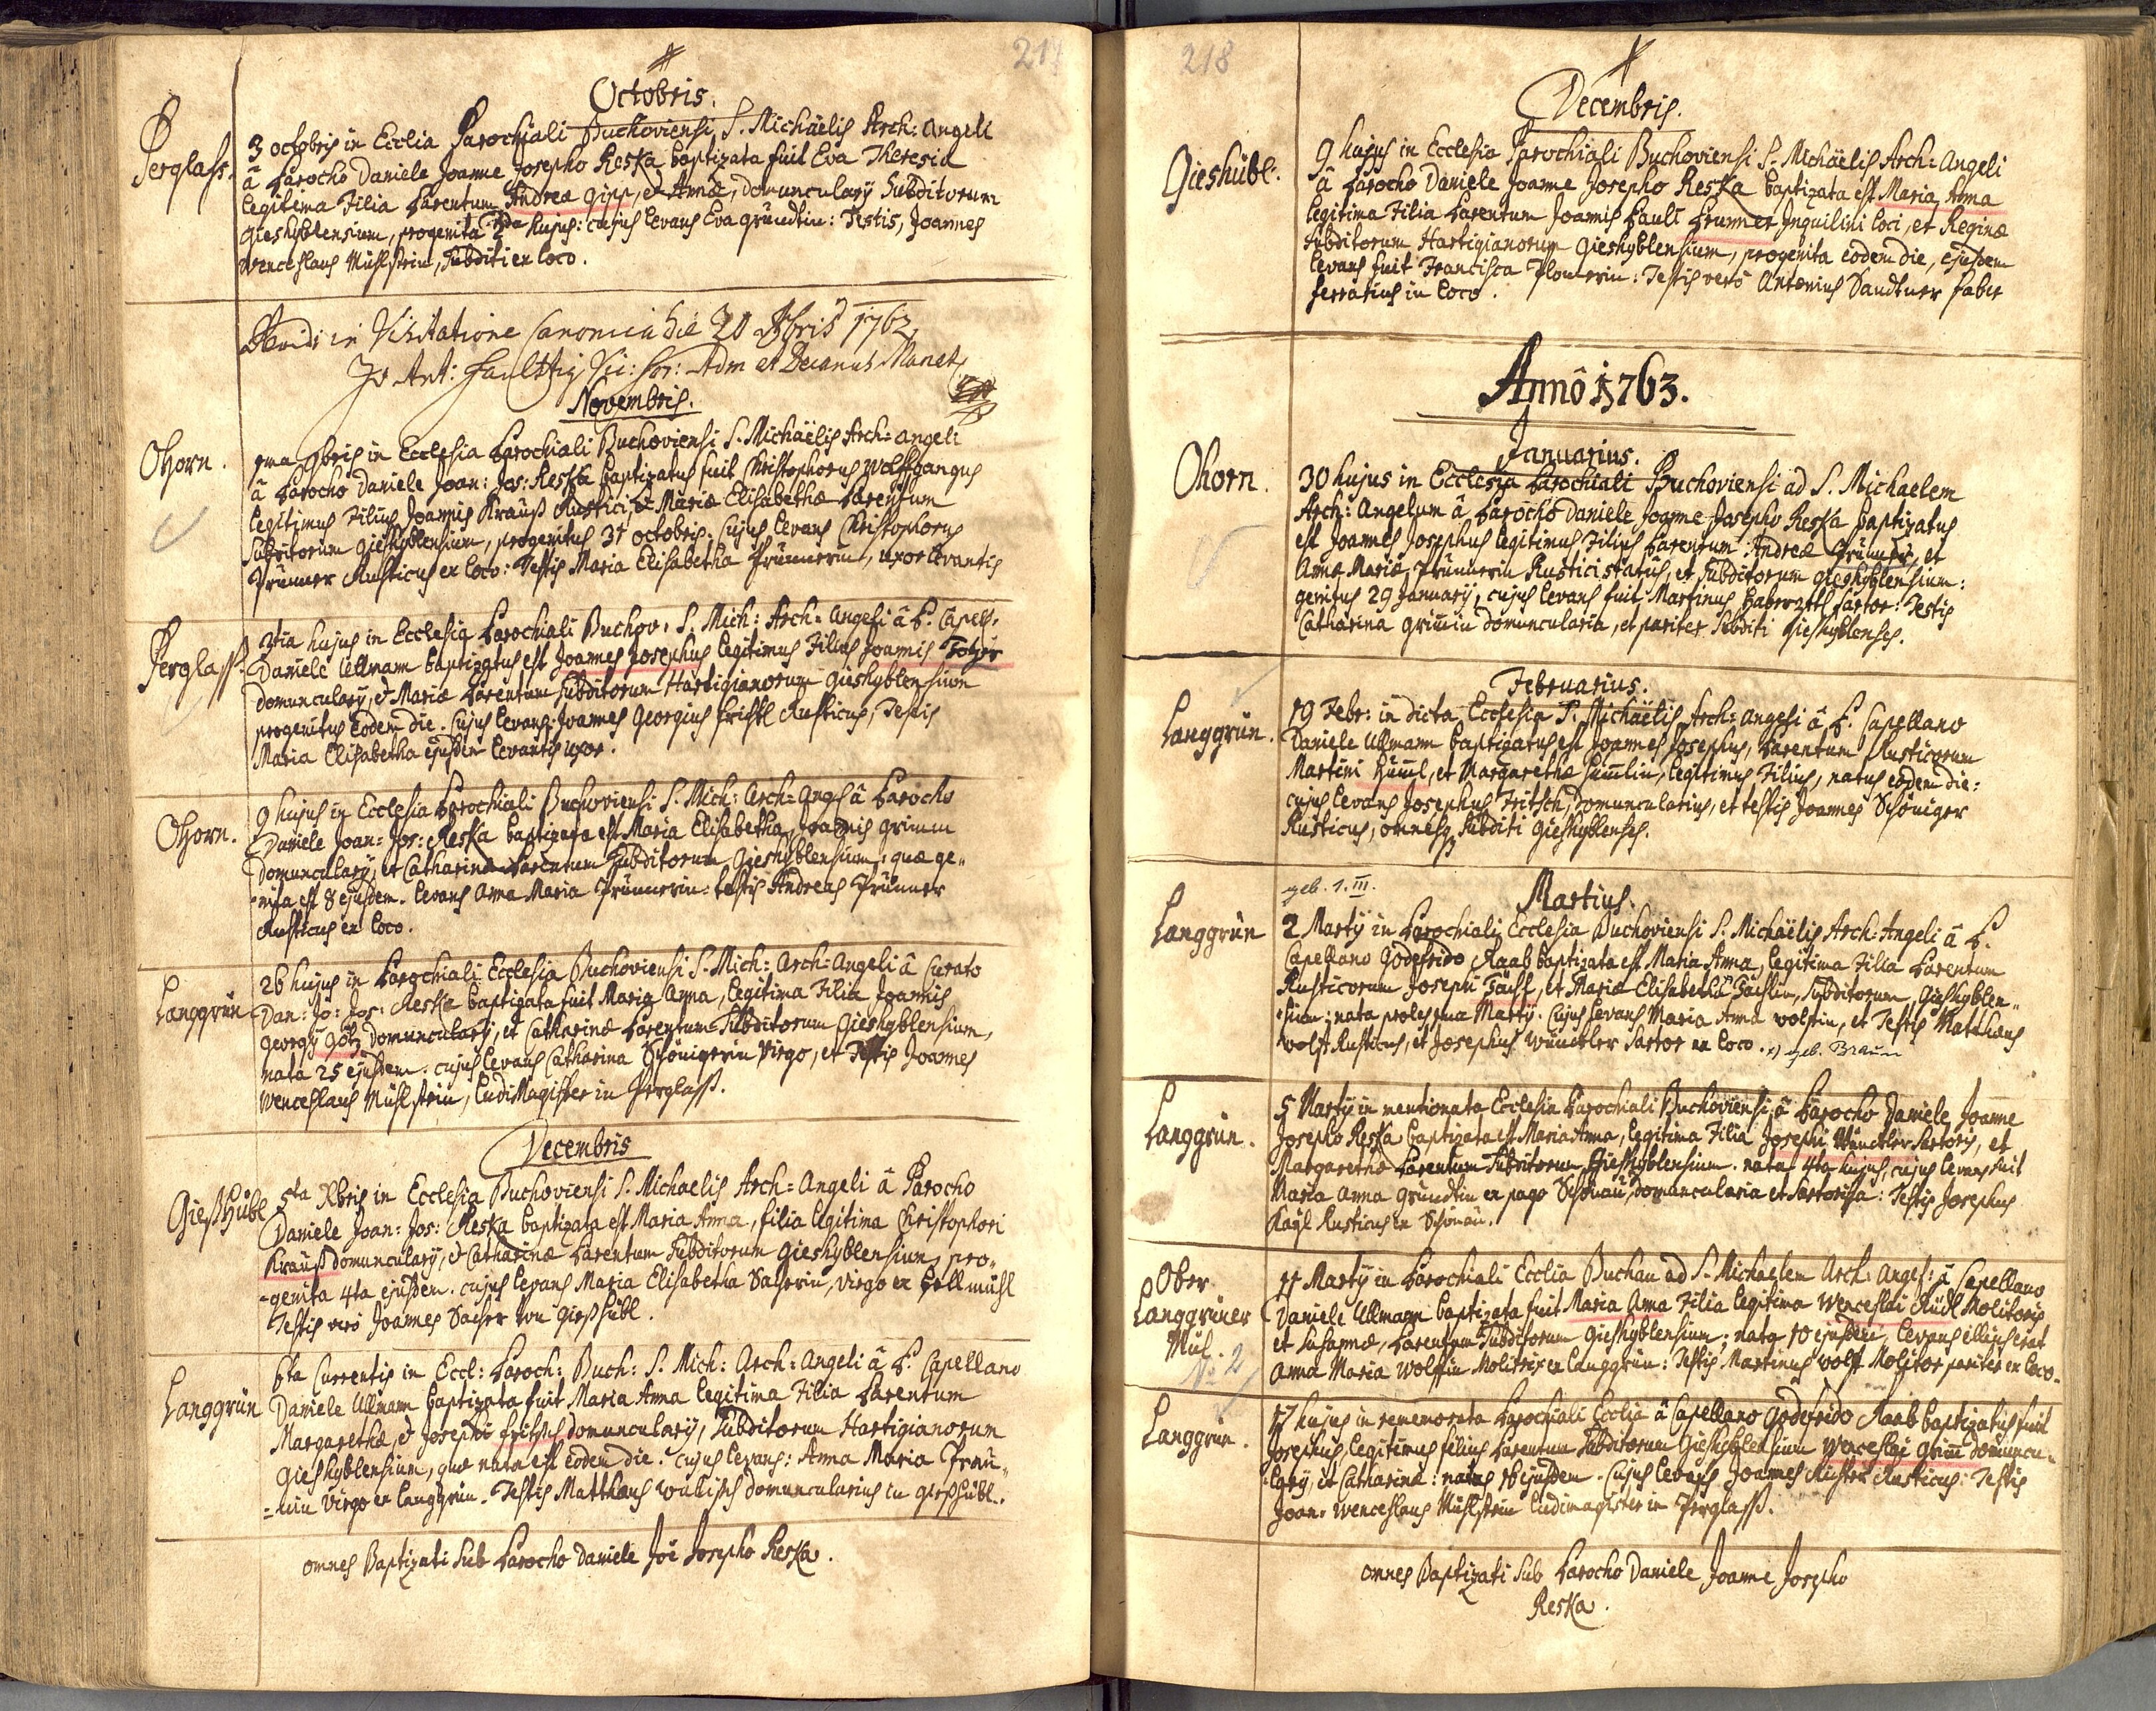 217
Octobris.
Perglass.
3 octobris in Ecclia Parochiali Buchoviensi S. Michäelis Arch: Angeli
â Parocho Daniele Joanne Josepho Reska baptizata fuit Eva Theresia
legitima Filia Parentum Andreæ Gipp, et Annæ, domuncularÿ Subditorum
Gieshyblensium, progenita 2da hujus: cujus levans Eva Gründtin: Testis, Joannes
Wenceslaus Mühlstein, Subditi ex loco.
vidi in Visitatione Canonica die 20 8bris 1762
Jo Ant: Vic: for: Adm et Decanus Manet
Novembris.
Ohorn.
1ma 9bris in Ecclesia Parochiali Buchoviensi S. Michäelis Arch: angeli
â Parocho Daniele Joan: Jos: Reska baptizatus fuit Christophorus Wolffgangus
legitimus Filius Joannis Krauß Rustici, et Mariæ Elisabethæ Parentum
Subditorum Gieshyblensium, progenitus 31 octobris. Cujus levans Christophorus
Prünner Rusticus ex loco: Testis Maria Elisabetha Prünnerin, uxor levantis
Perglass.
3tia hujus in Ecclesia Parochiali Buchov. S. Mich: Arch: Angeli â P. Capell.
Daniele Ullmann baptizatus est Joannes Josephus legitimus Filius Joannis
domuncularÿ, et Mariæ Parentum Subditorum Hartigianorum Gieshyblensium
progenitus eodem die. Cujus levans: Joannes Georgius Rusticus, Testis
Maria Elisabetha ejusdem levantis uxor.
Ohorn.
9 hujus in Ecclesia Parochiali Buchoviensi S. Mich: Arch: Angeli â Parocho
Daniele Joan: Jos: Reska baptizata est Maria Elisabetha, Joannis Grimm
domuncularÿ, et Catharinæ Parentum Subditorum Gieshyblensium: quæ ge„
„nita est 8 ejusdem. levans Anna Maria Prünnerin: testis Andreas Prünner
Rusticus ex loco.
Langgrün
26 hujus in Parochiali Ecclesia Buchoviensi S. Mich: Arch: Angeli â Curato
Dan: Jo: Jos: Reska baptizata fuit Maria Anna, legitima Filia Joannis
Georgÿ Götz domuncularÿ, et Catharinæ Parentum Subditorum Gieshyblensium,
nata 25 ejusdem. cujus levans Catharina Schönigerin Virgo, et Testis Joannes
Wenceslaus Mühlstein, Ludi Magister in Perglass.
Decembris
Gießhübl
5ta Xbris in Ecclesia Buchoviensi S. Michaelis Arch: Angeli â Parocho
Daniele Joan: Jos: Reska baptizata est Maria Anna, filia legitima Christophori
Krauß domuncularÿ, et Catharinæ Parentum Subditorum Gieshyblensium, pro„
„genita 4ta ejusdem. cujus levans Maria Elisabetha Sacherin, virgo ex
Testis verò Joannes Sacher von Gießhübl.
Langgrün
6ta Currentis in Eccl: Paroch: Buch: S. Mich: Arch: Angeli â P. Capellano
Daniele Ullmann baptizata fuit Maria Anna legitima Filia Parentum
Margarethæ, et Josephi Fritsch domuncularÿ, Subditorum Hartigianorum
Gieshyblensium, quæ nata est eodem die. Cujus levans: Anna Maria
virgo ex Langgrün. Testis Matthæus domuncularius in Gießhübl.
omnes Baptizati Sub Parocho Daniele Joe Josepho Reska.
218
Decembris.
Gieshübl.
9 hujus in Ecclesia Parochiali Buchoviensi S. Michäelis Arch: Angeli
â Parocho Daniele Joanne Josepho Reska baptizata est Maria Anna
legitima Filia Parentum Joannis Pauli Brunner Inquilini loci, et Reginæ
Subditorum Hartigianorum Gieshyblensium, progenita eodem die, ejusdem
levans fuit Francisca Plomerin: Testis verò Antonius Sandtner faber
ferrarius in loco.
Annô 1763.
Januarius.
Ohorn.
30 hujus in Ecclesia Parochiali Buchoviensi ad S. Michaelem
Arch: Angelum â Parocho Daniele Joanne Josepho Reska baptizatus
est Joannes Josephus legitimus Filius Parentum Andreæ Prünner, et
Annæ Mariæ Prünnerin Rustici status, et Subditorum Gieshyblensium:
genitus 29 January, cujus levans fuit Martinus Sartor: Testis
Catharina Grimin domuncularia, et pariter Subditi Gieshyblenses.
Februarius.
Langgrün.
19 Febr: in dicta Ecclesia S. Michäelis Arch: Angeli â P. Capellano
Daniele Ullmann baptizatus est Joannes Josephus, Parentum Rusticorum
Martini Huml, et Margarethæ Humlin, legitimus Filius, natus eodem die:
cujus levans Josephus Fritsch domuncularius, et testis Joannes Schöniger
Rusticus, omnesq Subditi Gieshyblenses.
geb. 1. III.
Martius.
Langgrün
2 Martÿ in Parochiali Ecclesia Buchoviensi S. Michäelis Arch: Angeli â P.
Capellano Godefrido Raab baptizata est Maria Anna, legitima Filia Parentum
Rusticorum Josephi et Mariæ Elisabethæ Subditorum Gieshyblen„
„sium: nata proles 1ma Martÿ. Cujus levans Maria Anna Wolfin, et Testis Matthæus
Wolf Rusticus, et Josephus Wunderer Sartor ex loco. x) geb. Braun
Langgrün.
5 Martÿ in mentionata Ecclesia Parochiali Buchoviensi, â Parocho Daniele Joanne
Josepho Reska baptizata est Maria Anna, legitima Filia Josephi Sartoris, et
Margarethæ Parentum Subditorum Gieshyblensium. nata 4ta hujus, cujus levans fuit
Maria Anna Gründtin ex pago Schönau domuncularia et Sartorissa: Testis Josephus
Rusticus in Schönau.
Ober
Langgrüner
Mül.
N. 2
11 Martÿ in Parochiali Ecclia Buchau ad S. Michaelem Arch: Angel: â Capellano
Daniele Ullmann baptizata fuit Maria Anna Filia legitima Wenceslai Riedl Molitoris
et Susannæ, Parentum Subditorum Gieshyblensium: nata 10 ejusdem, levans illius erat
Anna Maria Wolffin Molitrix ex Langgrün: Testis Martinus Wolff Molitor pariter ex loco.
Langgrün.
17 hujus in rememorata Parochiali Ecclia â Capellano Godefrido Raab baptizatus fuit
Josephus, legitimus filius Parentum Subditorum Gieshyblensium Wenceslai Grim domuncu„
„larÿ, et Catharinæ: natus 16 ejusdem. Cujus levans Joannes Richter Rusticus: Testis
Joan: Wenceslaus Mühlstein Ludimagister in Perglass.
omnes Baptizati Sub Parocho Daniele Joanne Josepho
Reska.